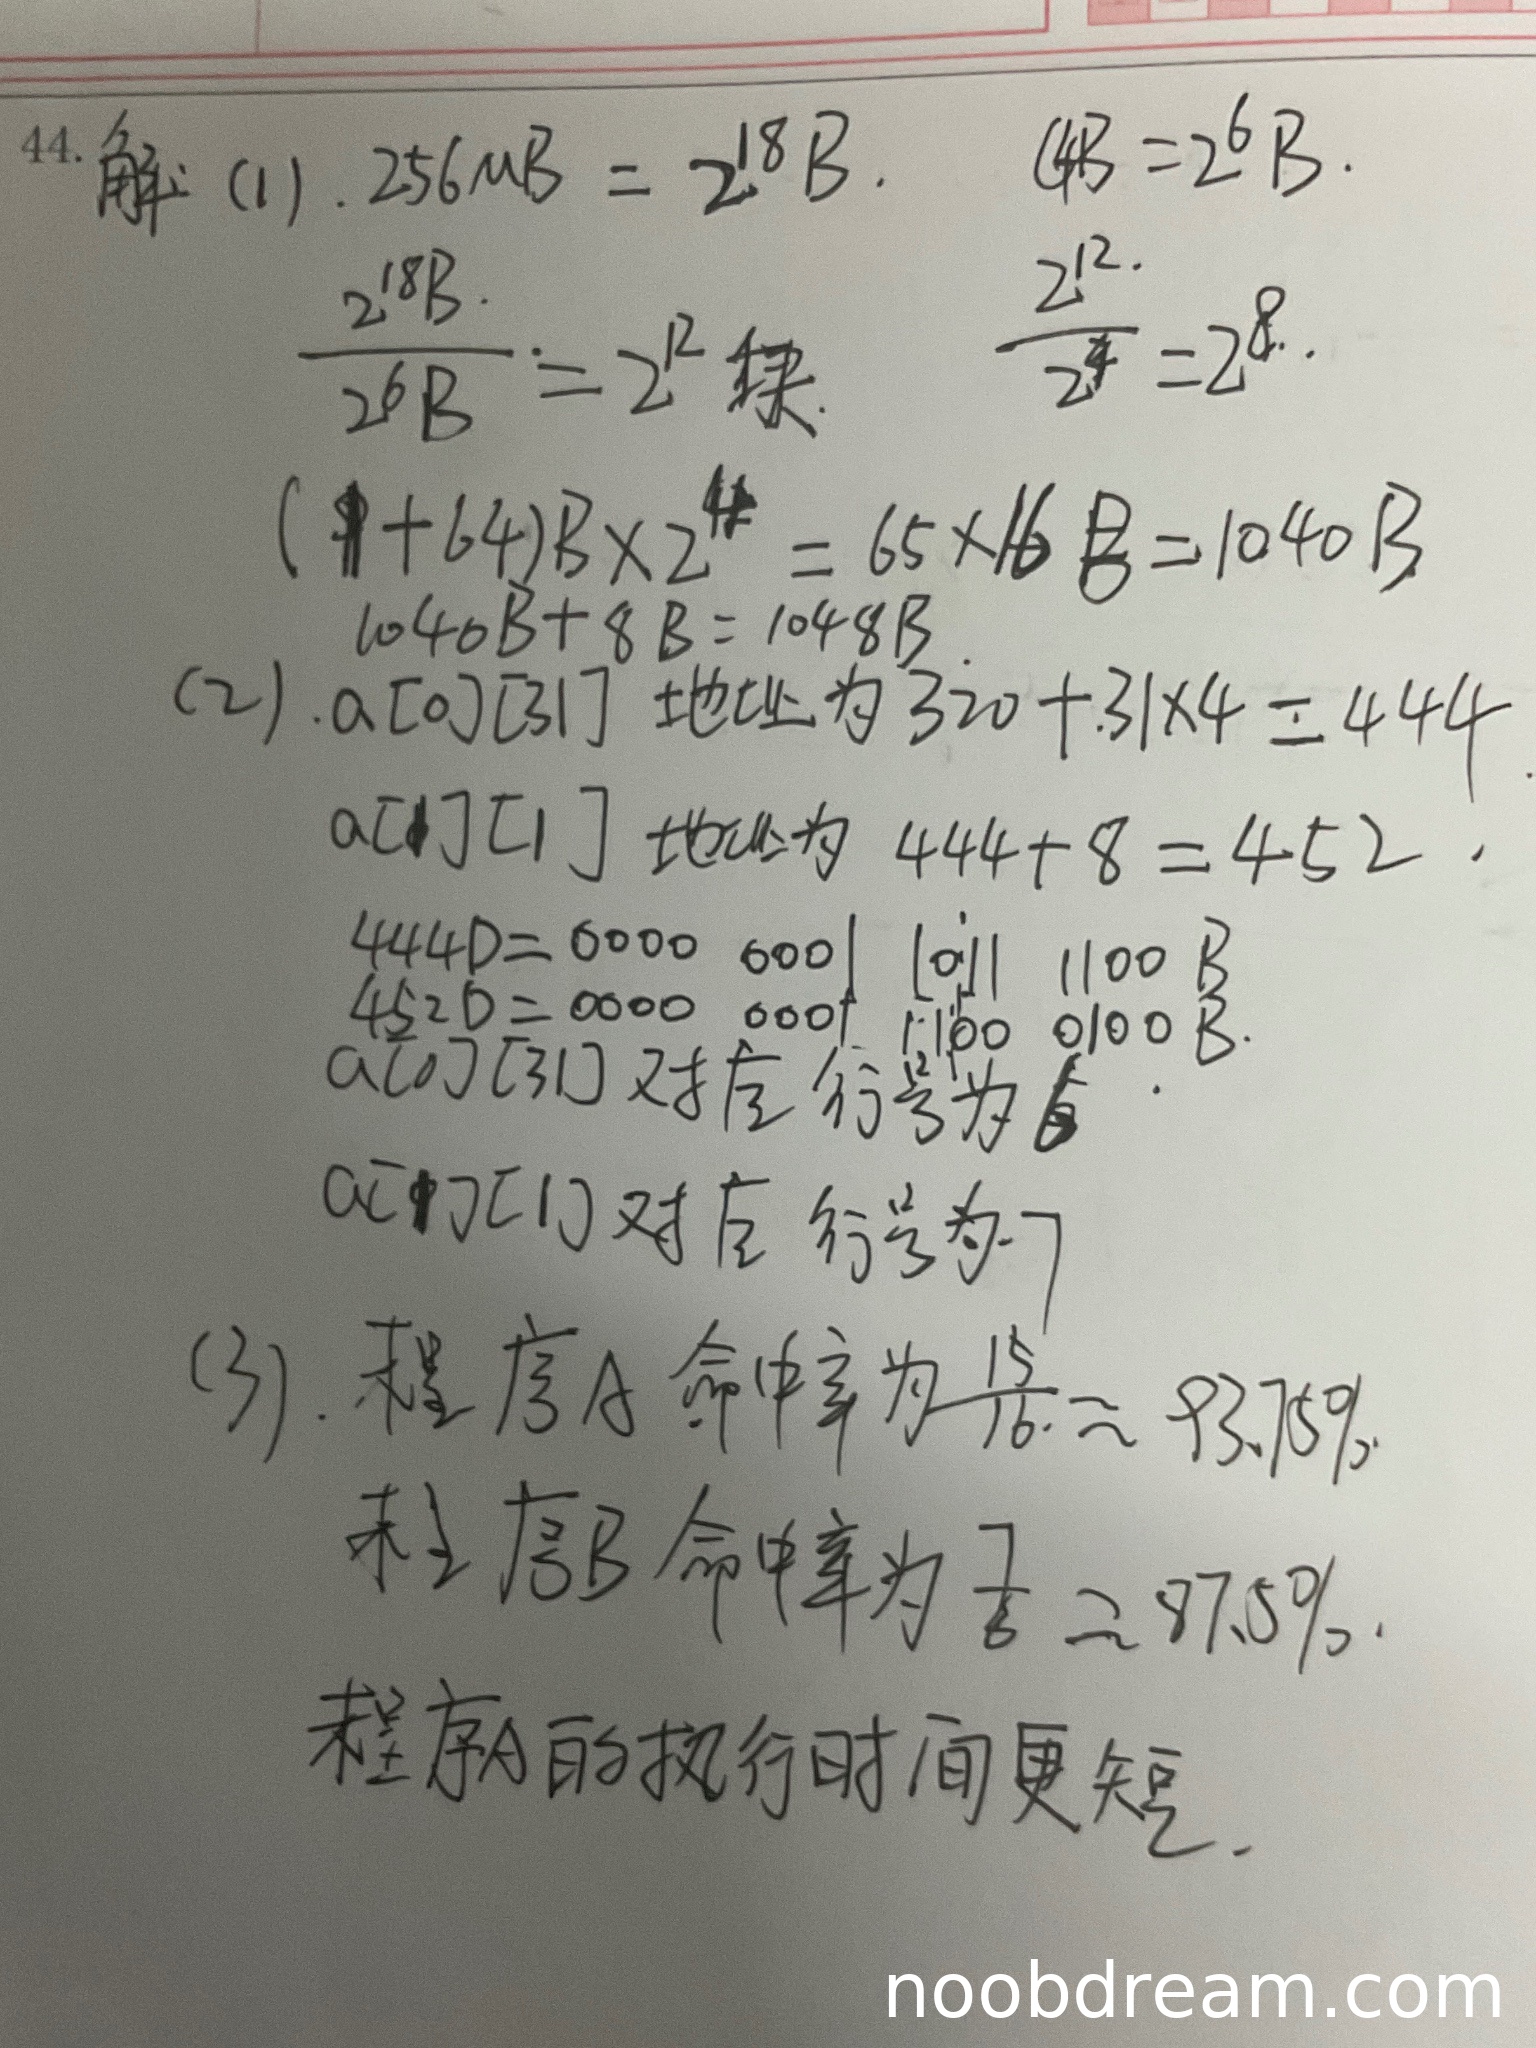 44. 解: (1). 256MB = 2^18 B. 64B = 2^6 B.
2^18 B. / 2^6 B = 2^12 块. 2^12. / 2^4 = 2^8.
(1+64)B×2^4 = 65×16 B = 1040B
1040B+8B=1048B.
(2). a[0][31] 地址为 320+31×4=444.
a[1][1] 地址为 444+8=452.
444D=0000 0001 1011 1100 B
452D=0000 0001 1100 0100 B.
a[0][31]对应行号为6.
a[1][1]对应行号为7
(3). 程序A命中率为15/16.≈93.75%.
程序B命中率为7/8≈87.5%.
程序A的执行时间更短.
noobdream.com